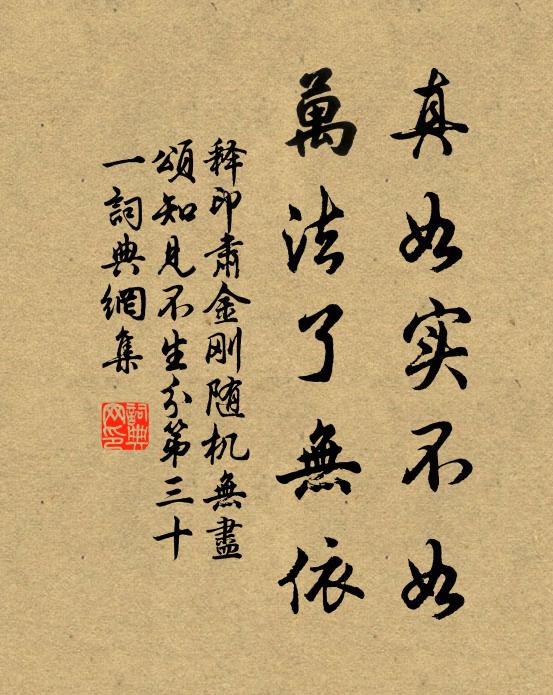 真如实不如
萬法了無依
释印肃金刚随机無盡
頌知見不生分第三十
一詞典網集
詞典网印